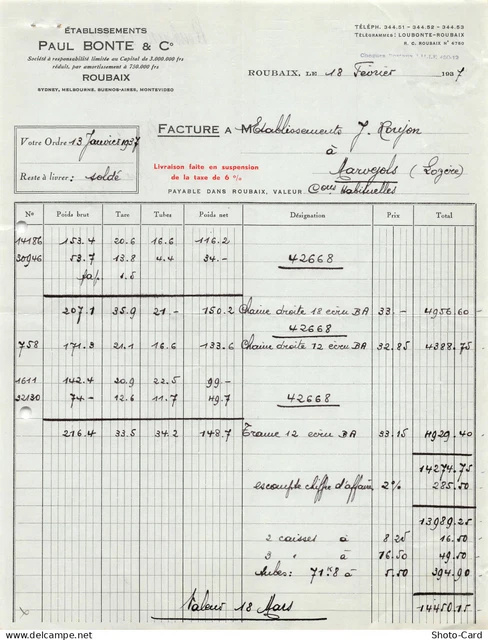 ÉTABLISSEMENTS
PAUL BONTE & Co
Société à responsabilité limitée au Capital de 3.000.000 frs
réduit, par amortissement à 750.000 frs
ROUBAIX
SYDNEY, MELBOURNE, BUENOS-AIRES, MONTEVIDEO
TÉLÉPH. 344.51 - 344.52 - 344.53
TÉLÉGRAMMES: LOUBONTE-ROUBAIX
R. C. ROUBAIX No 4760
ROUBAIX, LE 18 Février 1937
Votre Ordre 13 Janvier 1937
Reste à livrer: soldé
FACTURE A M Etablissements J. Roujon
à
Marvejols (Lozère)
Livraison faite en suspension
de la taxe de 6 %
PAYABLE DANS ROUBAIX, VALEUR Cons Habituelles
No Poids brut Tare Tubes Poids net Désignation Prix Total
14186 153.4 20.6 16.6 116.2
30946 53.7 13.8 4.4 34.- 42668
pap. 1.5
207.1 35.9 21.- 150.2 Chaine droite 18 écru BA 33.- 4956.60
42668
758 171.3 21.1 16.6 133.6 Chaine droite 12 écru BA 32.85 4388.75
1611 142.4 20.9 22.5 99.-
32130 74.- 12.6 11.7 49.7 42668
216.4 33.5 34.2 148.7 Trame 12 écru BA 33.15 4929.40
14274.75
escompte chiffre d'affaires 2% 285.50
13989.25
2 caisses à 8.25 16.50
3 " à 16.50 49.50
Tubes: 71K8 à 5.50 394.90
Valeur 18 Mars 14450.15
Photo-Carte-Shop - Card.com